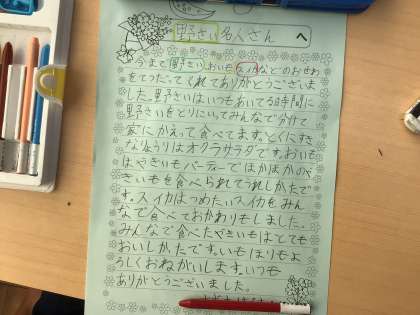 野さい名人さんへ
今まで野さい、おいも、スイカなどのおせわ
をてつだってくれてありがとうございま
した。野さいはいつもあいている時間に
野さいをとりにいってみんなで分けて
家にかえって食べてます。とくにすき
なりょうりはオクラサラダです。おいも
はやきいもパーティーでほかほかのや
きいもを食べられてうれしかたで
す。スイカはつめたいスイカをみん
なで食べておかわりもしました。
みんなで食べたやきいもはとても
おいしかたです。いもほりもよ
ろしくおねがいします。いつも
ありがとうございました。